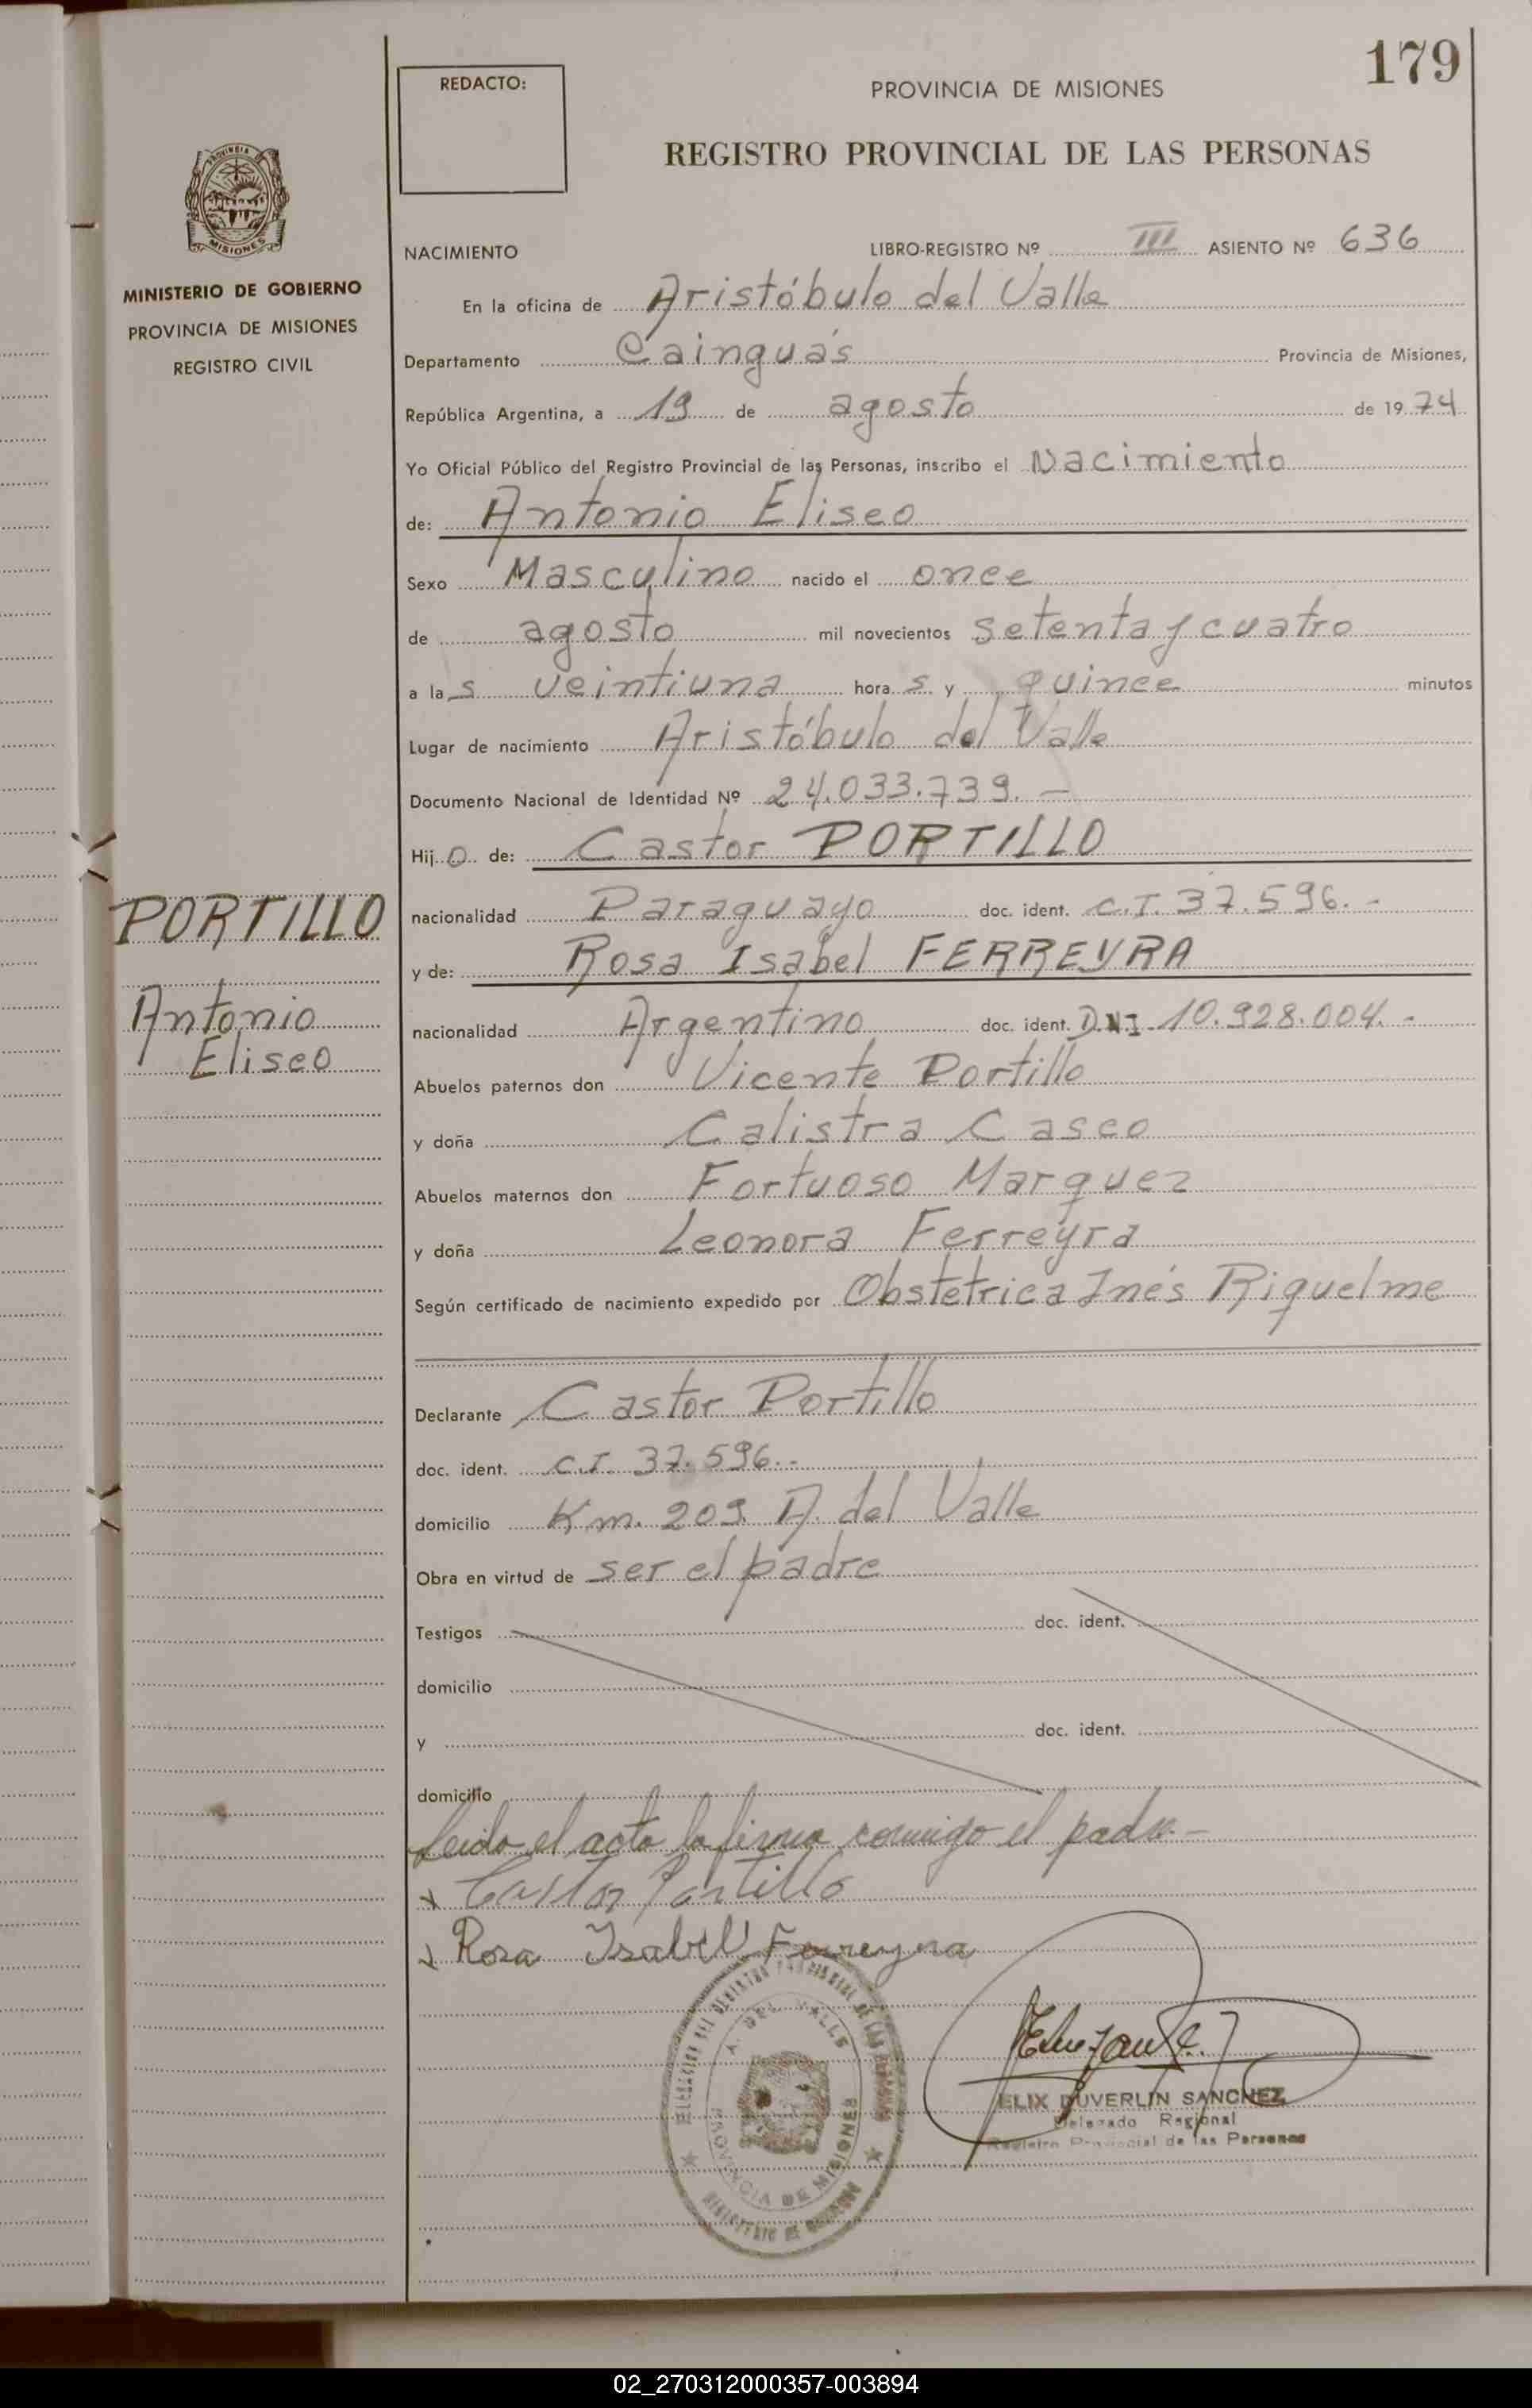 179
REDACTO:
PROVINCIA DE MISIONES
REGISTRO PROVINCIAL DE LAS PERSONAS
PROVINCIA DE
MISIONES
MINISTERIO DE GOBIERNO
PROVINCIA DE MISIONES
REGISTRO CIVIL
NACIMIENTO LIBRO-REGISTRO Nº III ASIENTO Nº 636
En la oficina de Aristóbulo del Valle
Departamento Cainguás Provincia de Misiones,
República Argentina, a 19 de agosto de 1974
Yo Oficial Público del Registro Provincial de las Personas, inscribo el Nacimiento
de: Antonio Eliseo
Sexo Masculino nacido el once
de agosto mil novecientos setenta y cuatro
a las veintiuna horas y quince minutos
Lugar de nacimiento Aristóbulo del Valle
Documento Nacional de Identidad Nº 24.033.739.-
Hijo de: Castor PORTILLO
PORTILLO
nacionalidad Paraguayo doc. ident. C.I. 37.596.-
y de: Rosa Isabel FERREYRA
Antonio
Eliseo
nacionalidad Argentino doc. ident. D.N.I. 10.928.004.-
Abuelos paternos don Vicente Portillo
y doña Calistra Casco
Abuelos maternos don Fortuoso Marquez
y doña Leonora Ferreyra
Según certificado de nacimiento expedido por Obstetrica Inés Riquelme
Declarante Castor Portillo
doc. ident. C.I. 37.596.-
domicilio Km. 209. A. del Valle
Obra en virtud de ser el padre
Testigos doc. ident.
domicilio
y doc. ident.
domicilio
Leido el acta la firma conmigo el padre.-
x Castor Portillo
x Rosa Isabel Ferreyra
A. DEL VALLE
PROVINCIA DE MISIONES
ELIX DUVERLIN SANCHEZ
Delegado Regional
Registro Provincial de las Personas
02_270312000357-003894